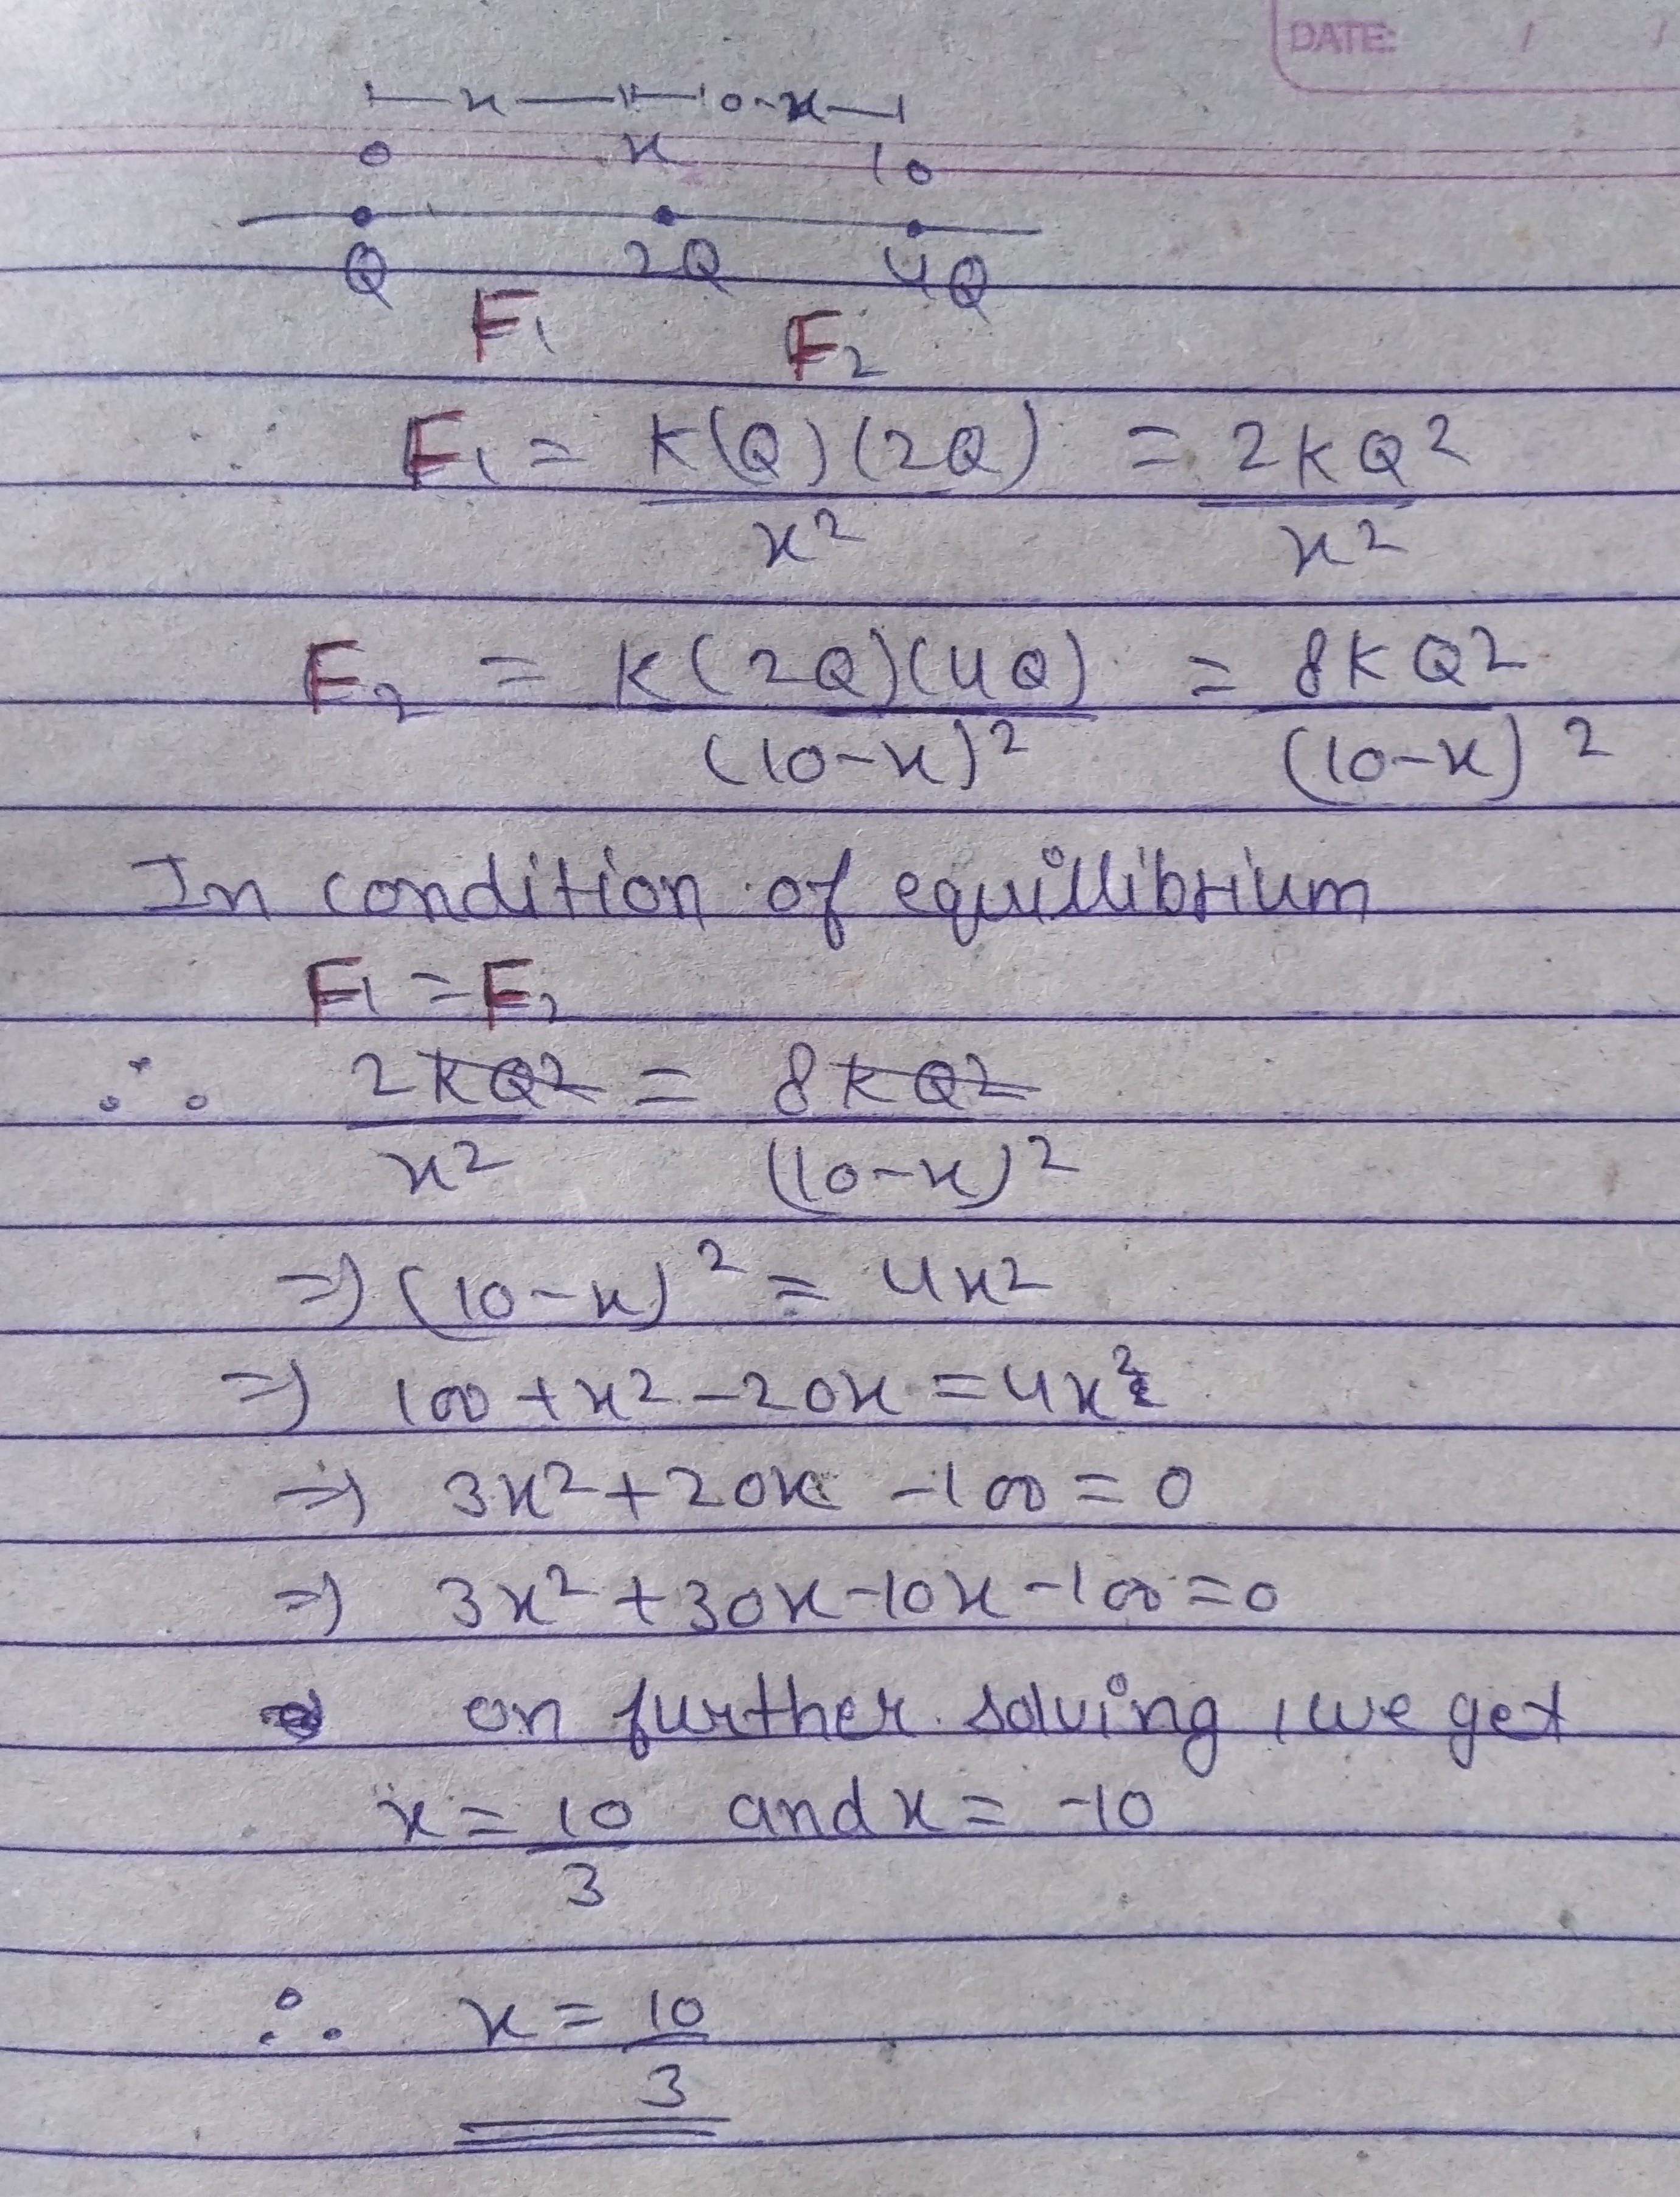 DATE: / /
x 10-x
0 x 10
Q 2Q 4Q
F1 F2
∵ F1 = K(Q)(2Q) = 2KQ2
x2 x2
F2 = K(2Q)(4Q) = 8KQ2
(10-x)2 (10-x)2
In condition of equillibrium
F1 = F2
∴ 2KQ2 = 8KQ2
x2 (10-x)2
⇒ (10-x)2 = 4x2
⇒ 100+x2-20x = 4x2
⇒ 3x2+20x -100=0
⇒ 3x2+30x-10x-100=0
on further solving, we get
x = 10 and x = -10
3
∴ x = 10
3